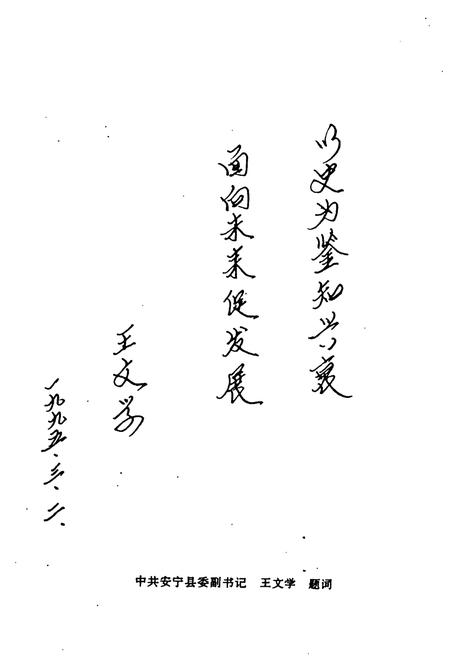 以史为鉴知兴衰
面向未来促发展
王文学
一九九五.三.二.
中共安宁县委副书记 王文学 题词